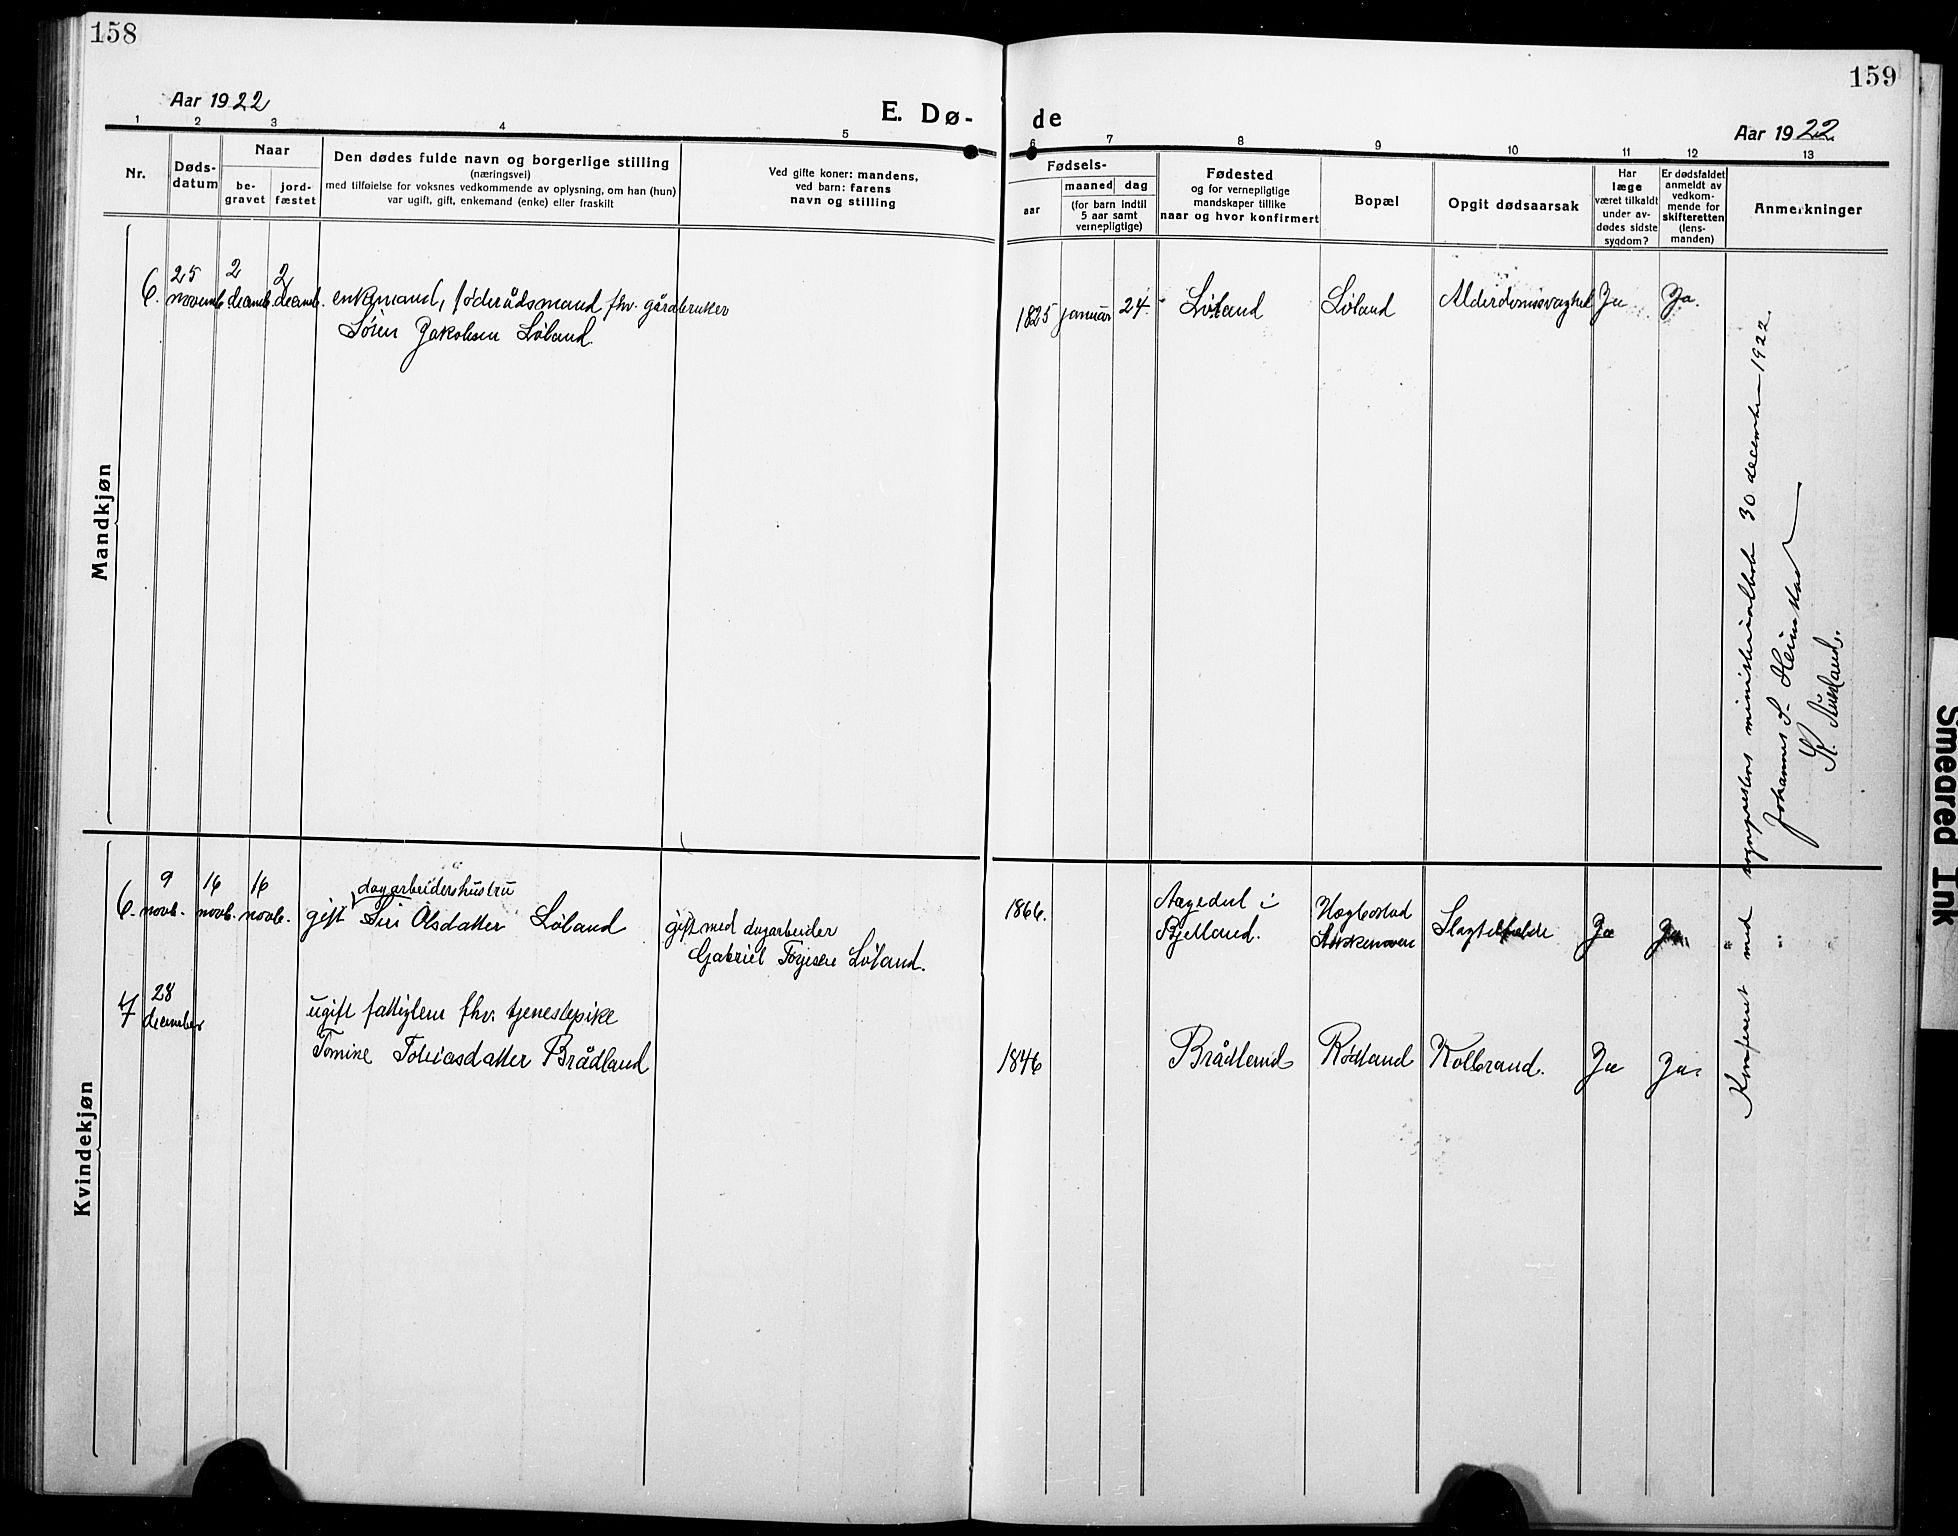 158
159
Aar 1922
E. Dø-
de
Aar 1922
1 2 3 4 5 6 7 8 9 10 11 12 13
Nr.
Døds-
datum
Naar
be-
gravet
jord-
fæstet
Den dødes fulde navn og borgerlige stilling
(næringsvei)
med tilføielse for voksnes vedkommende av oplysning, om han (hun)
var ugift, gift, enkemand (enke) eller fraskilt
Ved gifte koner: mandens,
ved barn: farens
navn og stilling
Fødsels-
aar
maaned dag
(for barn indtil
5 aar samt
vernepligtige)
Fødested
og for vernepligtige
mandskaper tillike
naar og hvor konfirmert
Bopæl
Opgit dødsaarsak
Har
læge
været tilkaldt
under av-
dødes sidste
sygdom?
Er dødsfaldet
anmeldt av
vedkom-
mende for
skifteretten
(lens-
manden)
Anmerkninger
Mandkjøn
6. 25 novemb. 2 decemb. 2 decemb. enkemand, føderådsmand fhv. gårdbruker
Sören Jakobsen Löland
1825 januar 24. Löland Löland Alderdomsvaghet Ja Ja.
Kvindekjøn
6. 9 novb. 16 novb. 16 novb.
dagarbeidershustru
gift Siri Olsdatter Löland
gift med dagarbeider
Gabriel Torjisen Löland.
1866.
Aagedal i
Bjelland.
Hægbostad
Slagtilfælde Ja Ja.
7 28 december
ugift fattiglem fhv. tjenestepike
Tomine Tobiasdatter Brådland
1846 Brådland Rödland Kolbrand. Ja Ja.
Konfereret med sogneprestens ministerialbok 30 december 1922.
Johannes S.